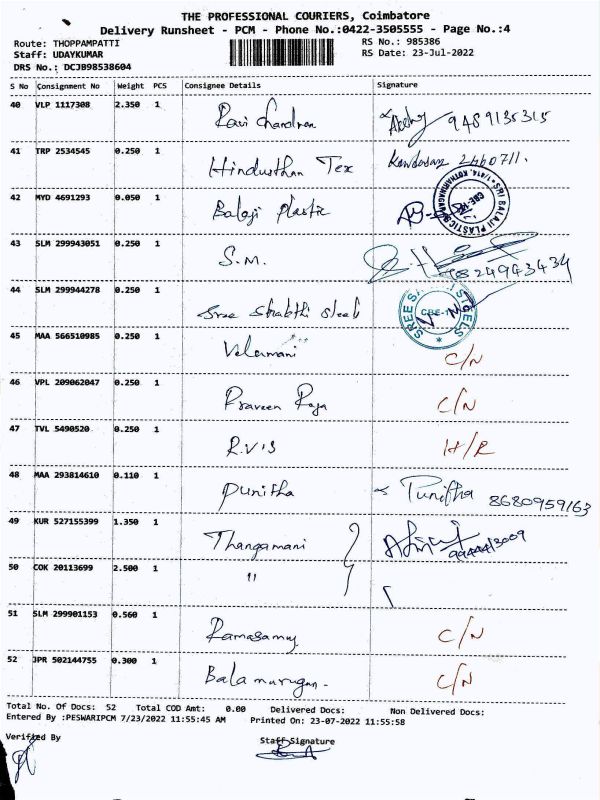 THE PROFESSIONAL COURIERS, Coimbatore
Delivery Runsheet - PCM - Phone No.:0422-3505555 - Page No.:4
Route: THOPPAMPATTI RS No.: 985386
Staff: UDAYKUMAR RS Date: 23-Jul-2022
DRS No.: DCJB98538604
S No Consignment No Weight PCS Consignee Details Signature
40 VLP 1117308 2.350 1 Ravi Chandran 9489135315
41 TRP 2534545 0.250 1 Hindusthan Tex Kandasamy 2460711.
42 MYD 4691293 0.050 1 Balaji Plastic
SRI BALAJI PLASTICS
43 SLM 299943051 0.250 1 S.M.
44 SLM 299944278 0.250 1 Sree Shakthi Steels
CBE-1
45 MAA 566510985 0.250 1 Velumani C/N
46 VPL 209062047 0.250 1 Praveen Raja C/N
47 TVL 5490520 0.250 1 R.V.S H/R
48 MAA 293814610 0.110 1 Punitha Punitha 8680959163
49 KUR 527155399 1.350 1 Thangamani
50 COK 20113699 2.500 1 "
51 SLM 299901153 0.560 1 Ramasamy C/N
52 JPR 502144755 0.300 1 Bala murugan. C/N
Total No. Of Docs: 52 Total COD Amt: 0.00 Delivered Docs: Non Delivered Docs:
Entered By :PESWARIPCM 7/23/2022 11:55:45 AM Printed On: 23-07-2022 11:55:58
Verified By Staff Signature